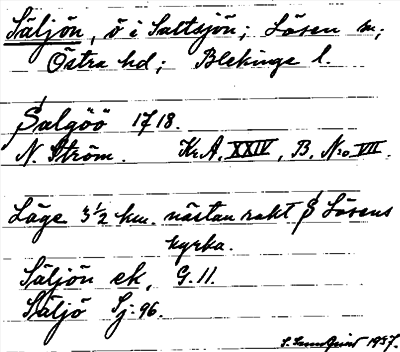 Säljön, ö i Saltsjön; Lösen sn;
Östra hd; Blekinge l.
Salgöö 1718.
N. Ström. Kr.A. XXIV, B. No VII.
Läge 3½ km. nästan rakt S Lösens
kyrka.
Säljön ek, G. 11.
Säljö Sj. 96.
S. Sundqvist 1937.